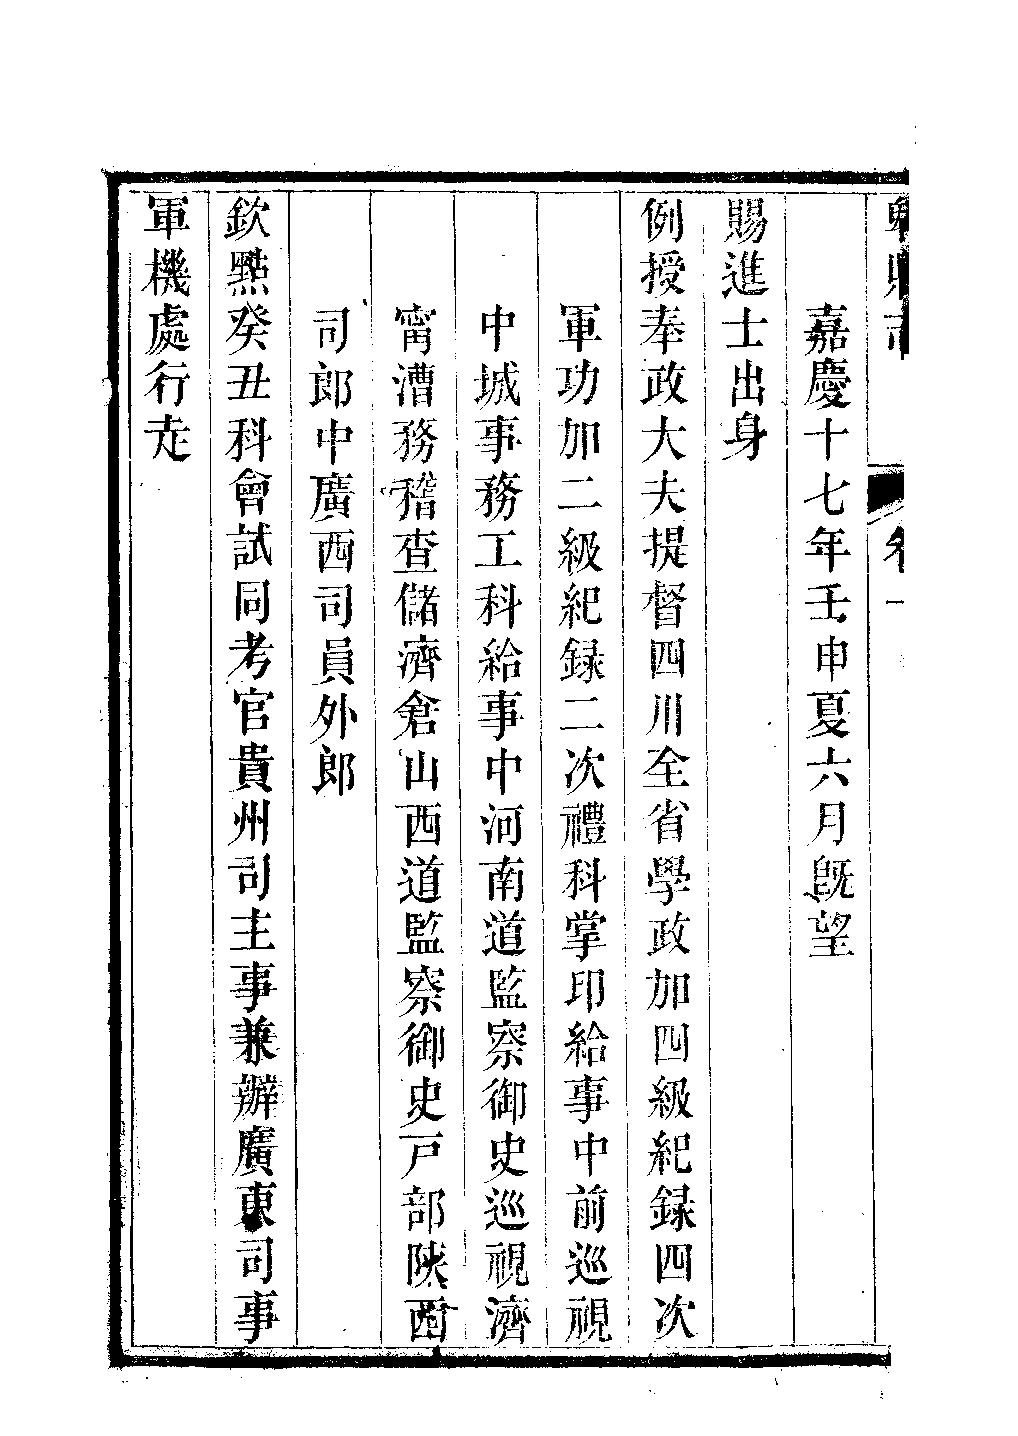 卷一
嘉慶十七年壬申夏六月既望
賜進士出身
例授奉政大夫提督四川全省學政加四級紀録四次
軍功加二級紀録二次禮科掌印給事中前巡視
中城事務工科給事中河南道監察御史巡視濟
甯漕務稽查儲濟倉山西道監察御史戸部陜西
司郎中廣西司員外郎
欽㸃癸丑科會試同考官貴州司主事兼辦廣東司事
軍機處行走